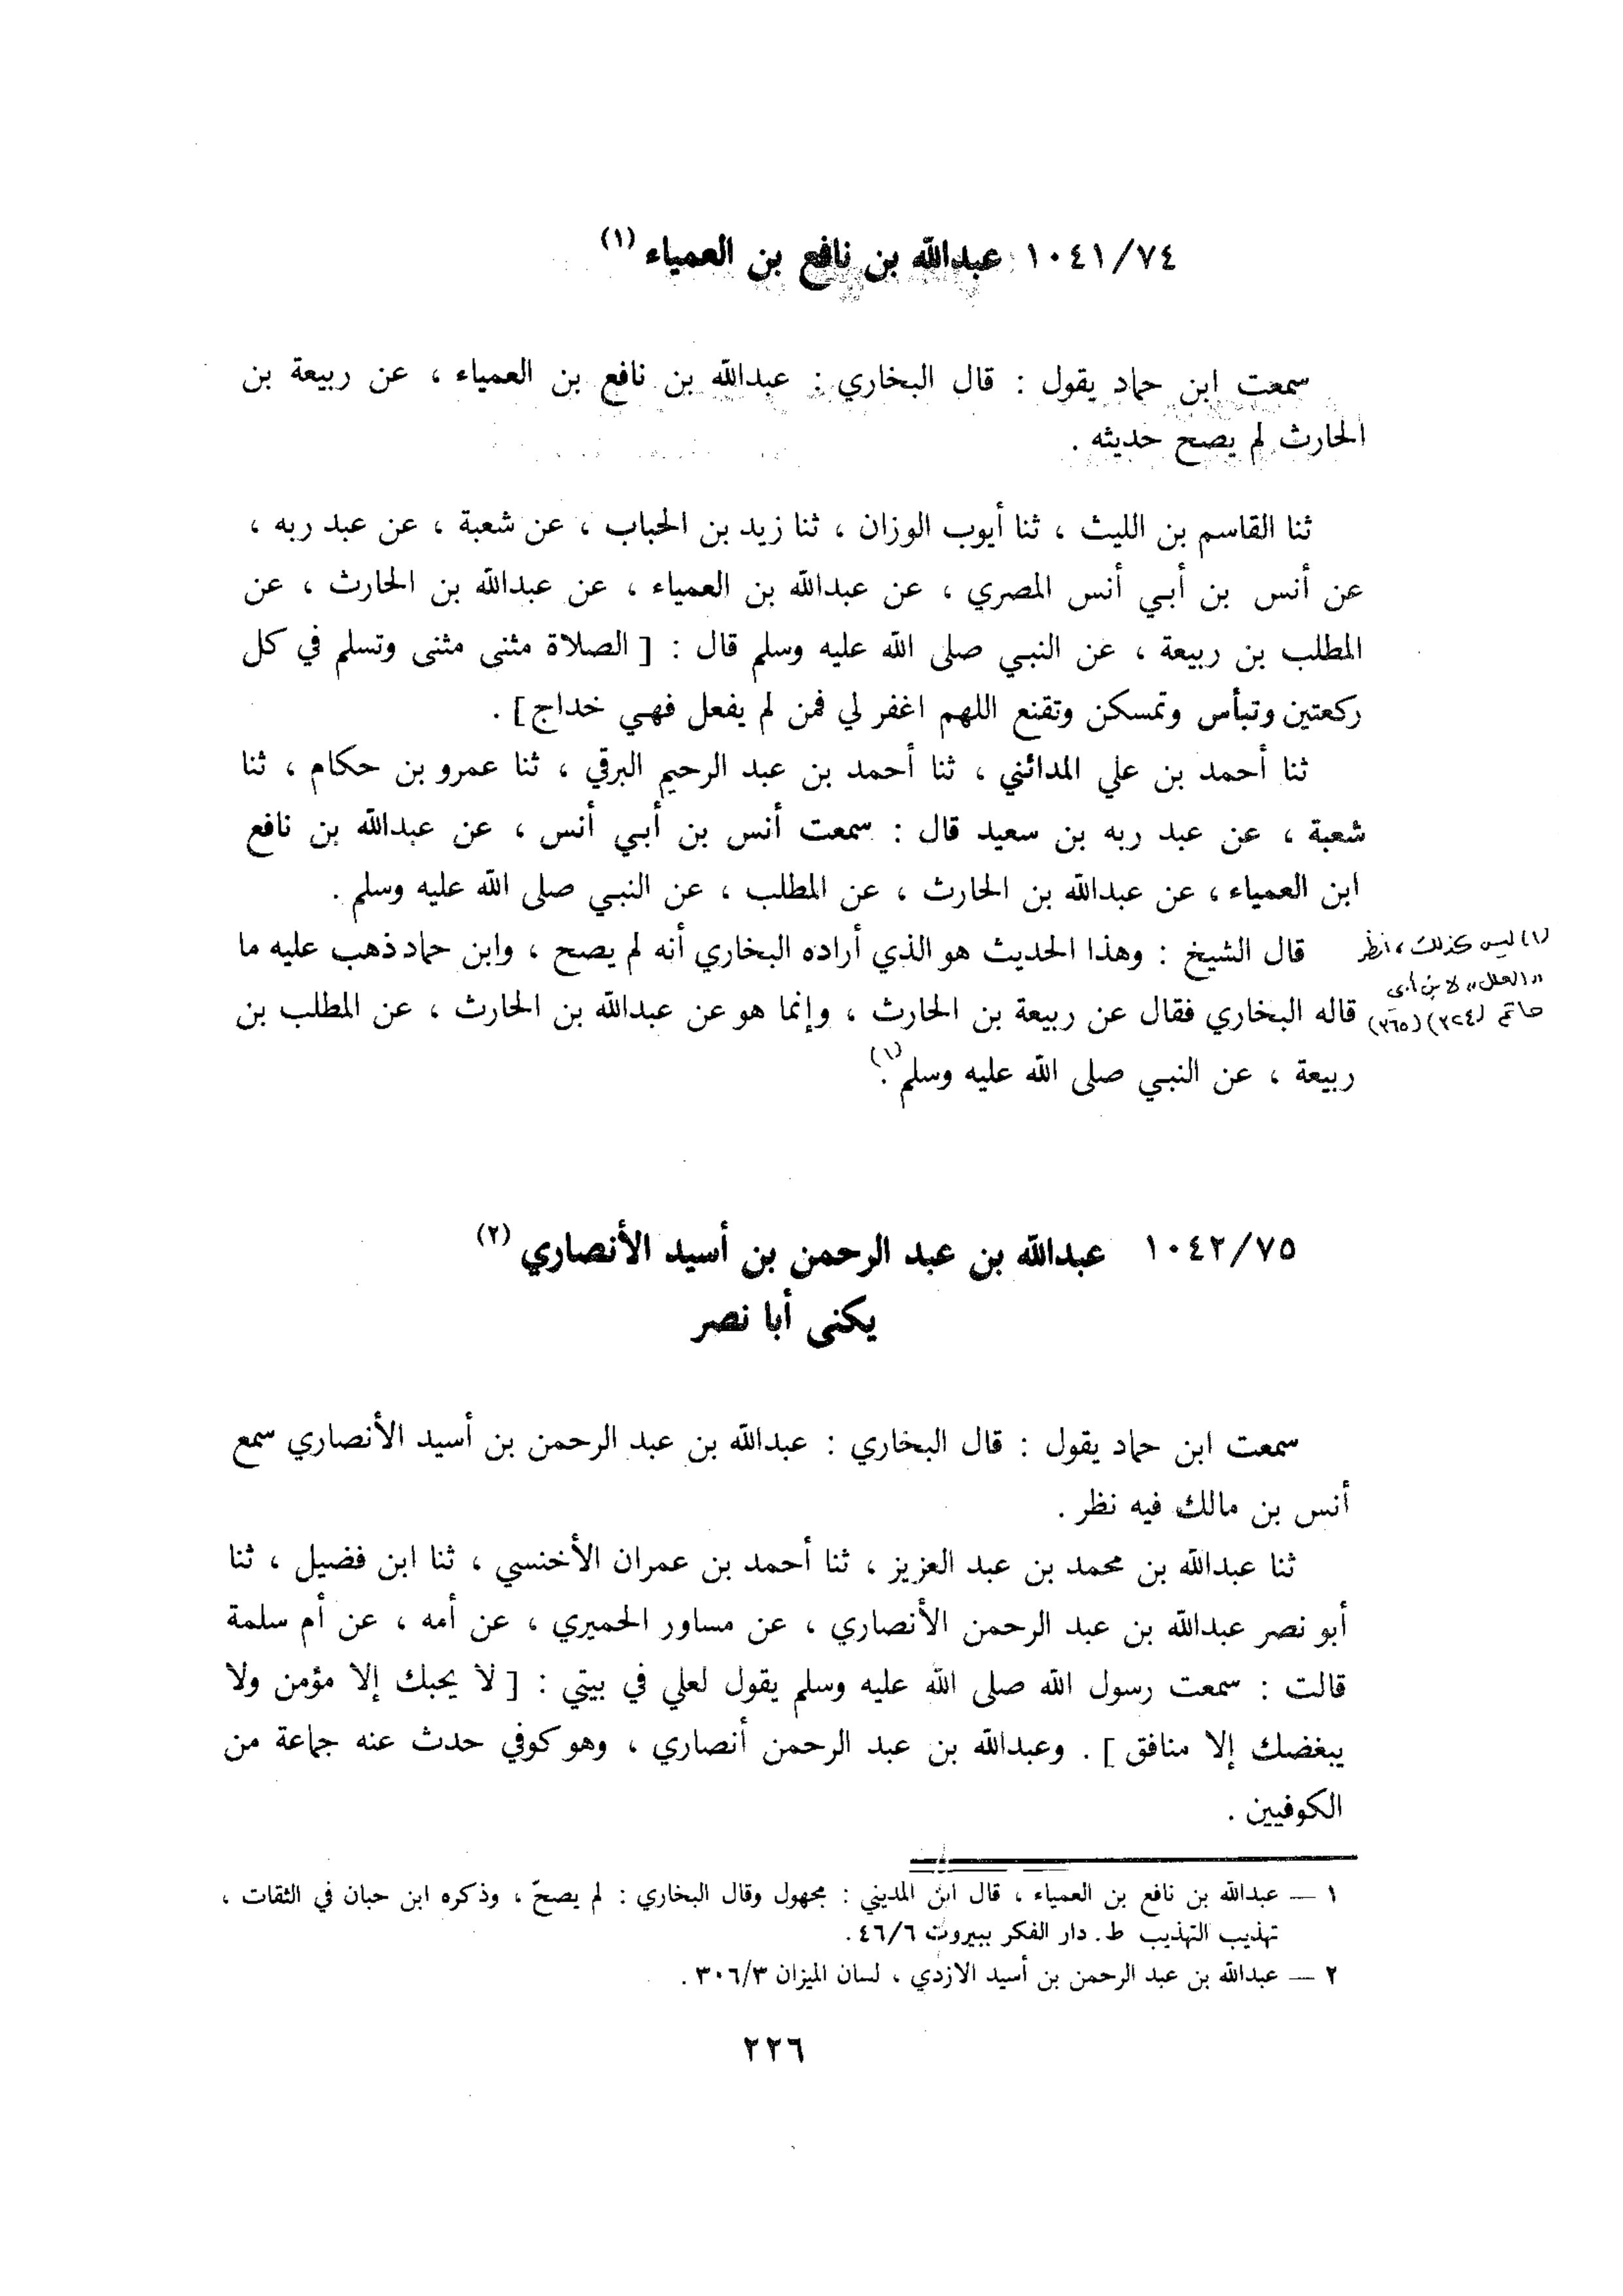 ١٠٤١/٧٤ عبدالله بن نافع بن العمياء (١)
سمعت ابن حماد يقول : قال البخاري : عبدالله بن نافع بن العمياء ، عن ربيعة بن
الحارث لم يصح حديثه .
ثنا القاسم بن الليث ، ثنا أيوب الوزان ، ثنا زيد بن الحباب ، عن شعبة ، عن عبد ربه ،
عن أنس بن أبي أنس المصري ، عن عبدالله بن العمياء ، عن عبدالله بن الحارث ، عن
المطلب بن ربيعة ، عن النبي صلى الله عليه وسلم قال : [ الصلاة مثنى مثنى وتسلم في كل
ركعتين وتبأس وتمسكن وتقنع اللهم اغفر لي فمن لم يفعل فهي خداج ] .
ثنا أحمد بن علي المدائني ، ثنا أحمد بن عبد الرحيم البرقي ، ثنا عمرو بن حكام ، ثنا
شعبة ، عن عبد ربه بن سعيد قال : سمعت أنس بن أبي أنس ، عن عبدالله بن نافع
ابن العمياء ، عن عبدالله بن الحارث ، عن المطلب ، عن النبي صلى الله عليه وسلم .
قال الشيخ : وهذا الحديث هو الذي أراده البخاري أنه لم يصح ، وابن حماد ذهب عليه ما
قاله البخاري فقال عن ربيعة بن الحارث ، وإنما هو عن عبدالله بن الحارث ، عن المطلب بن
ربيعة ، عن النبي صلى الله عليه وسلم (١) .
(١) ليس كذلك ، انظر
"العلل" لابن أبي
حاتم (٣٢٤) (٣٦٥)
١٠٤٢/٧٥ عبدالله بن عبد الرحمن بن أسيد الأنصاري (٢)
يكنى أبا نصر
سمعت ابن حماد يقول : قال البخاري : عبدالله بن عبد الرحمن بن أسيد الأنصاري سمع
أنس بن مالك فيه نظر .
ثنا عبدالله بن محمد بن عبد العزيز ، ثنا أحمد بن عمران الأخنسي ، ثنا ابن فضيل ، ثنا
أبو نصر عبدالله بن عبد الرحمن الأنصاري ، عن مساور الحميري ، عن أمه ، عن أم سلمة
قالت : سمعت رسول الله صلى الله عليه وسلم يقول لعلي في بيتي : [ لا يحبك إلا مؤمن ولا
يبغضك إلا منافق ] . وعبدالله بن عبد الرحمن أنصاري ، وهو كوفي حدث عنه جماعة من
الكوفيين .
١ — عبدالله بن نافع بن العمياء ، قال ابن المديني : مجهول وقال البخاري : لم يصحّ ، وذكره ابن حبان في الثقات ،
تهذيب التهذيب ط. دار الفكر ببيروت ٤٦/٦ .
٢ — عبدالله بن عبد الرحمن بن أسيد الازدي ، لسان الميزان ٣٠٦/٣ .
٢٢٦